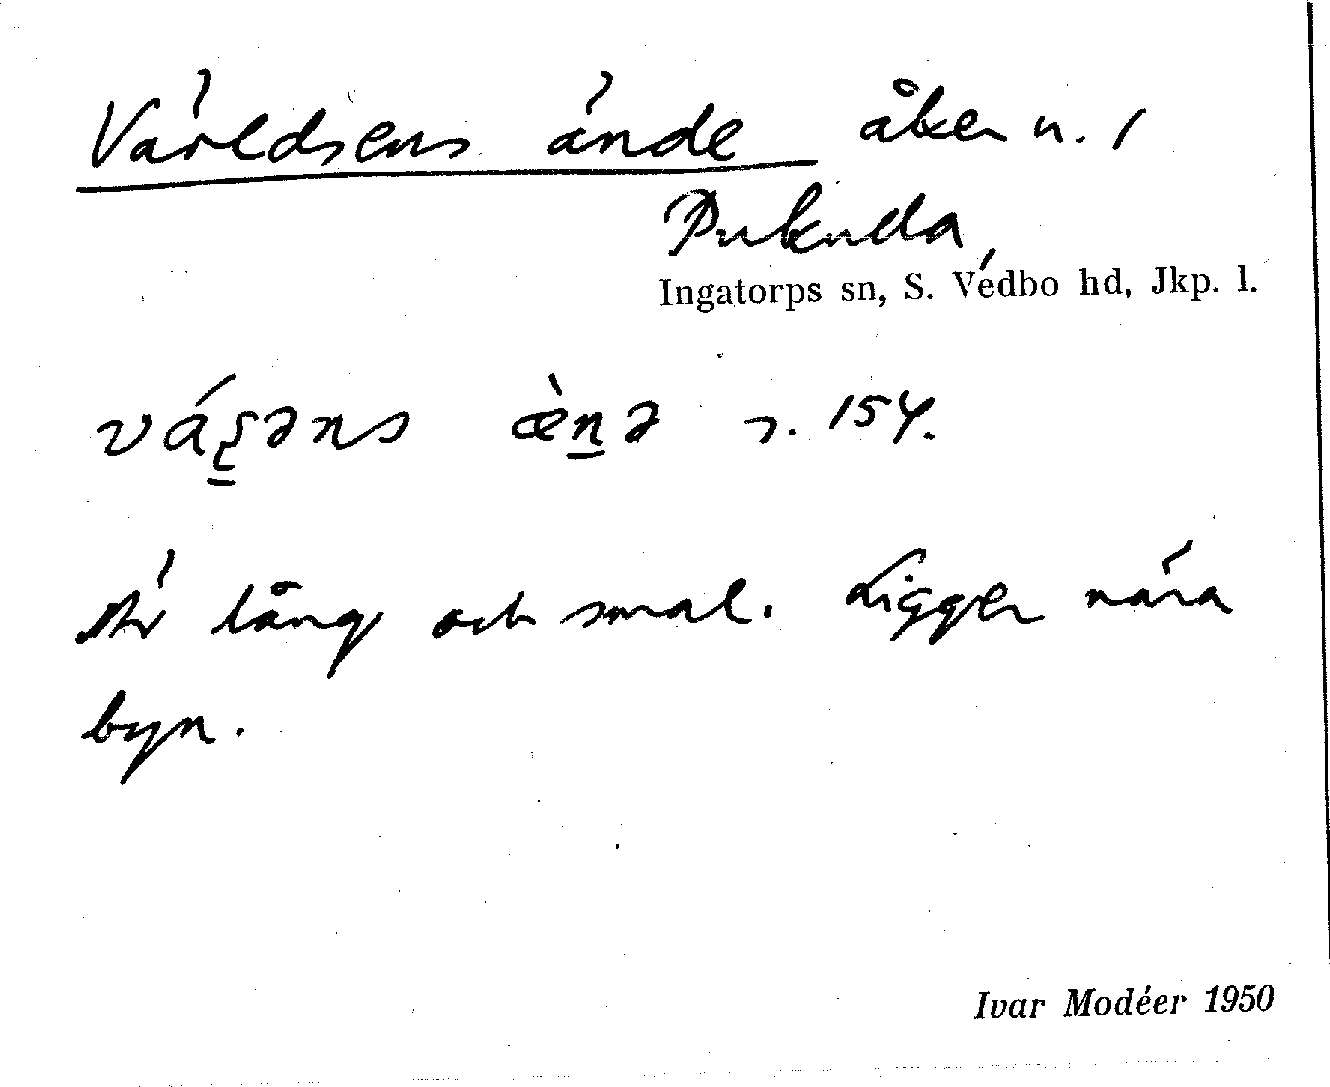 Världsens ände åker n. 1
Pukulla
Ingatorps sn, S. Vedbo hd, Jkp. l.
æ̀n̠ə s. 154.
Är lång och smal. Ligger nära
byn.
Ivar Modéer 1950